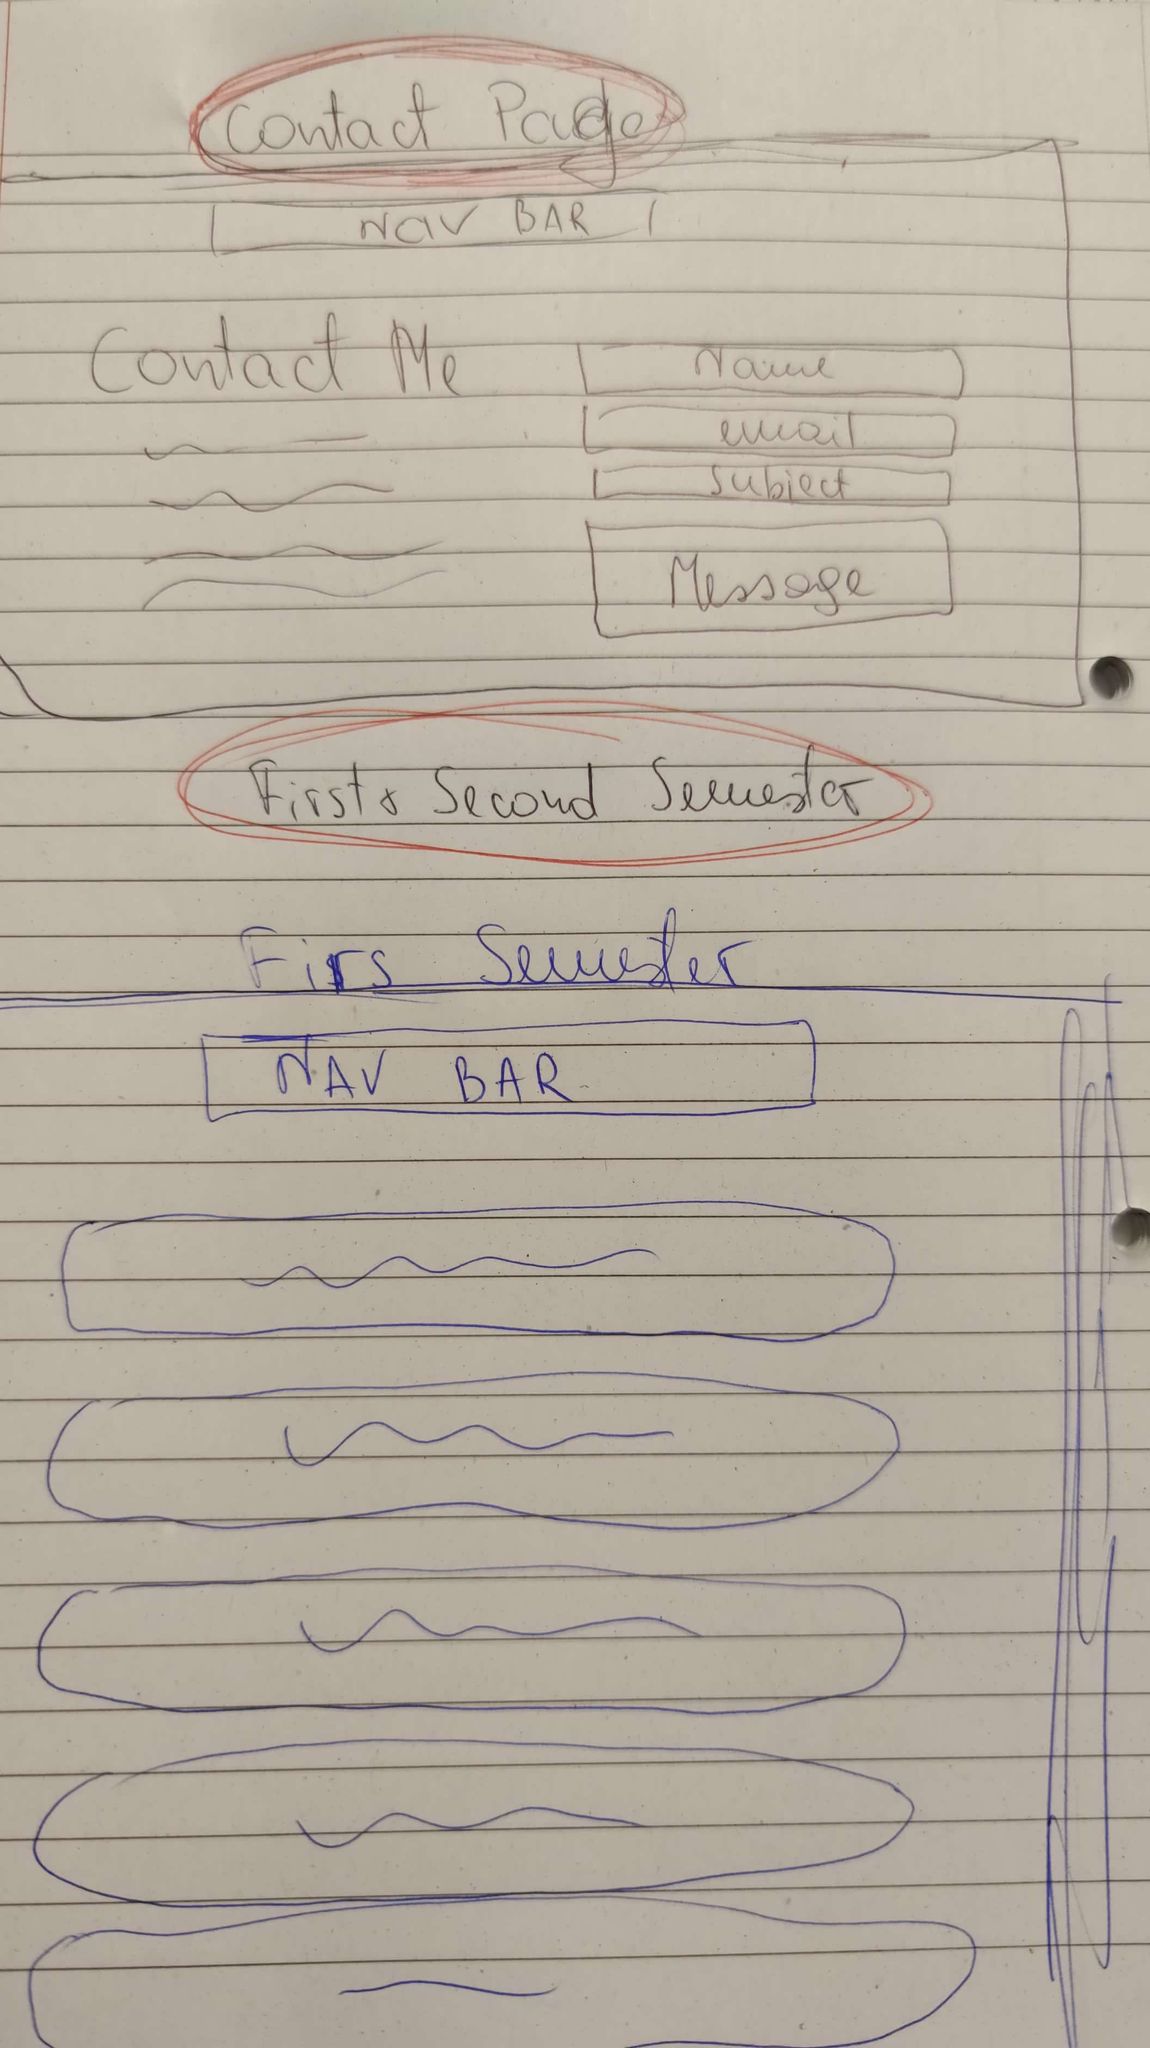 Contact Page
NAV BAR
Contact Me
Name
email
Subject
Message
First & Second Semester
Firs Semester
NAV BAR